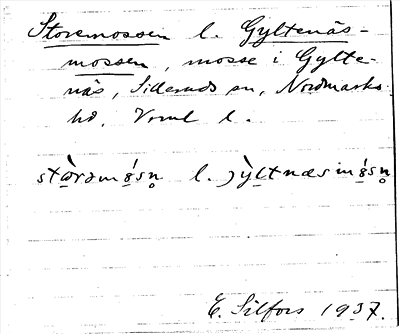 Storemossen l. Gyltenäs-
mossen, mosse i Gylte-
näs, Silleruds sn, Nordmarks
hd. Vrml l.
stɷ̀rəmɞ́sn̥ l. jỳltnæsmɞ́sn̥
E. Silfors 1937.